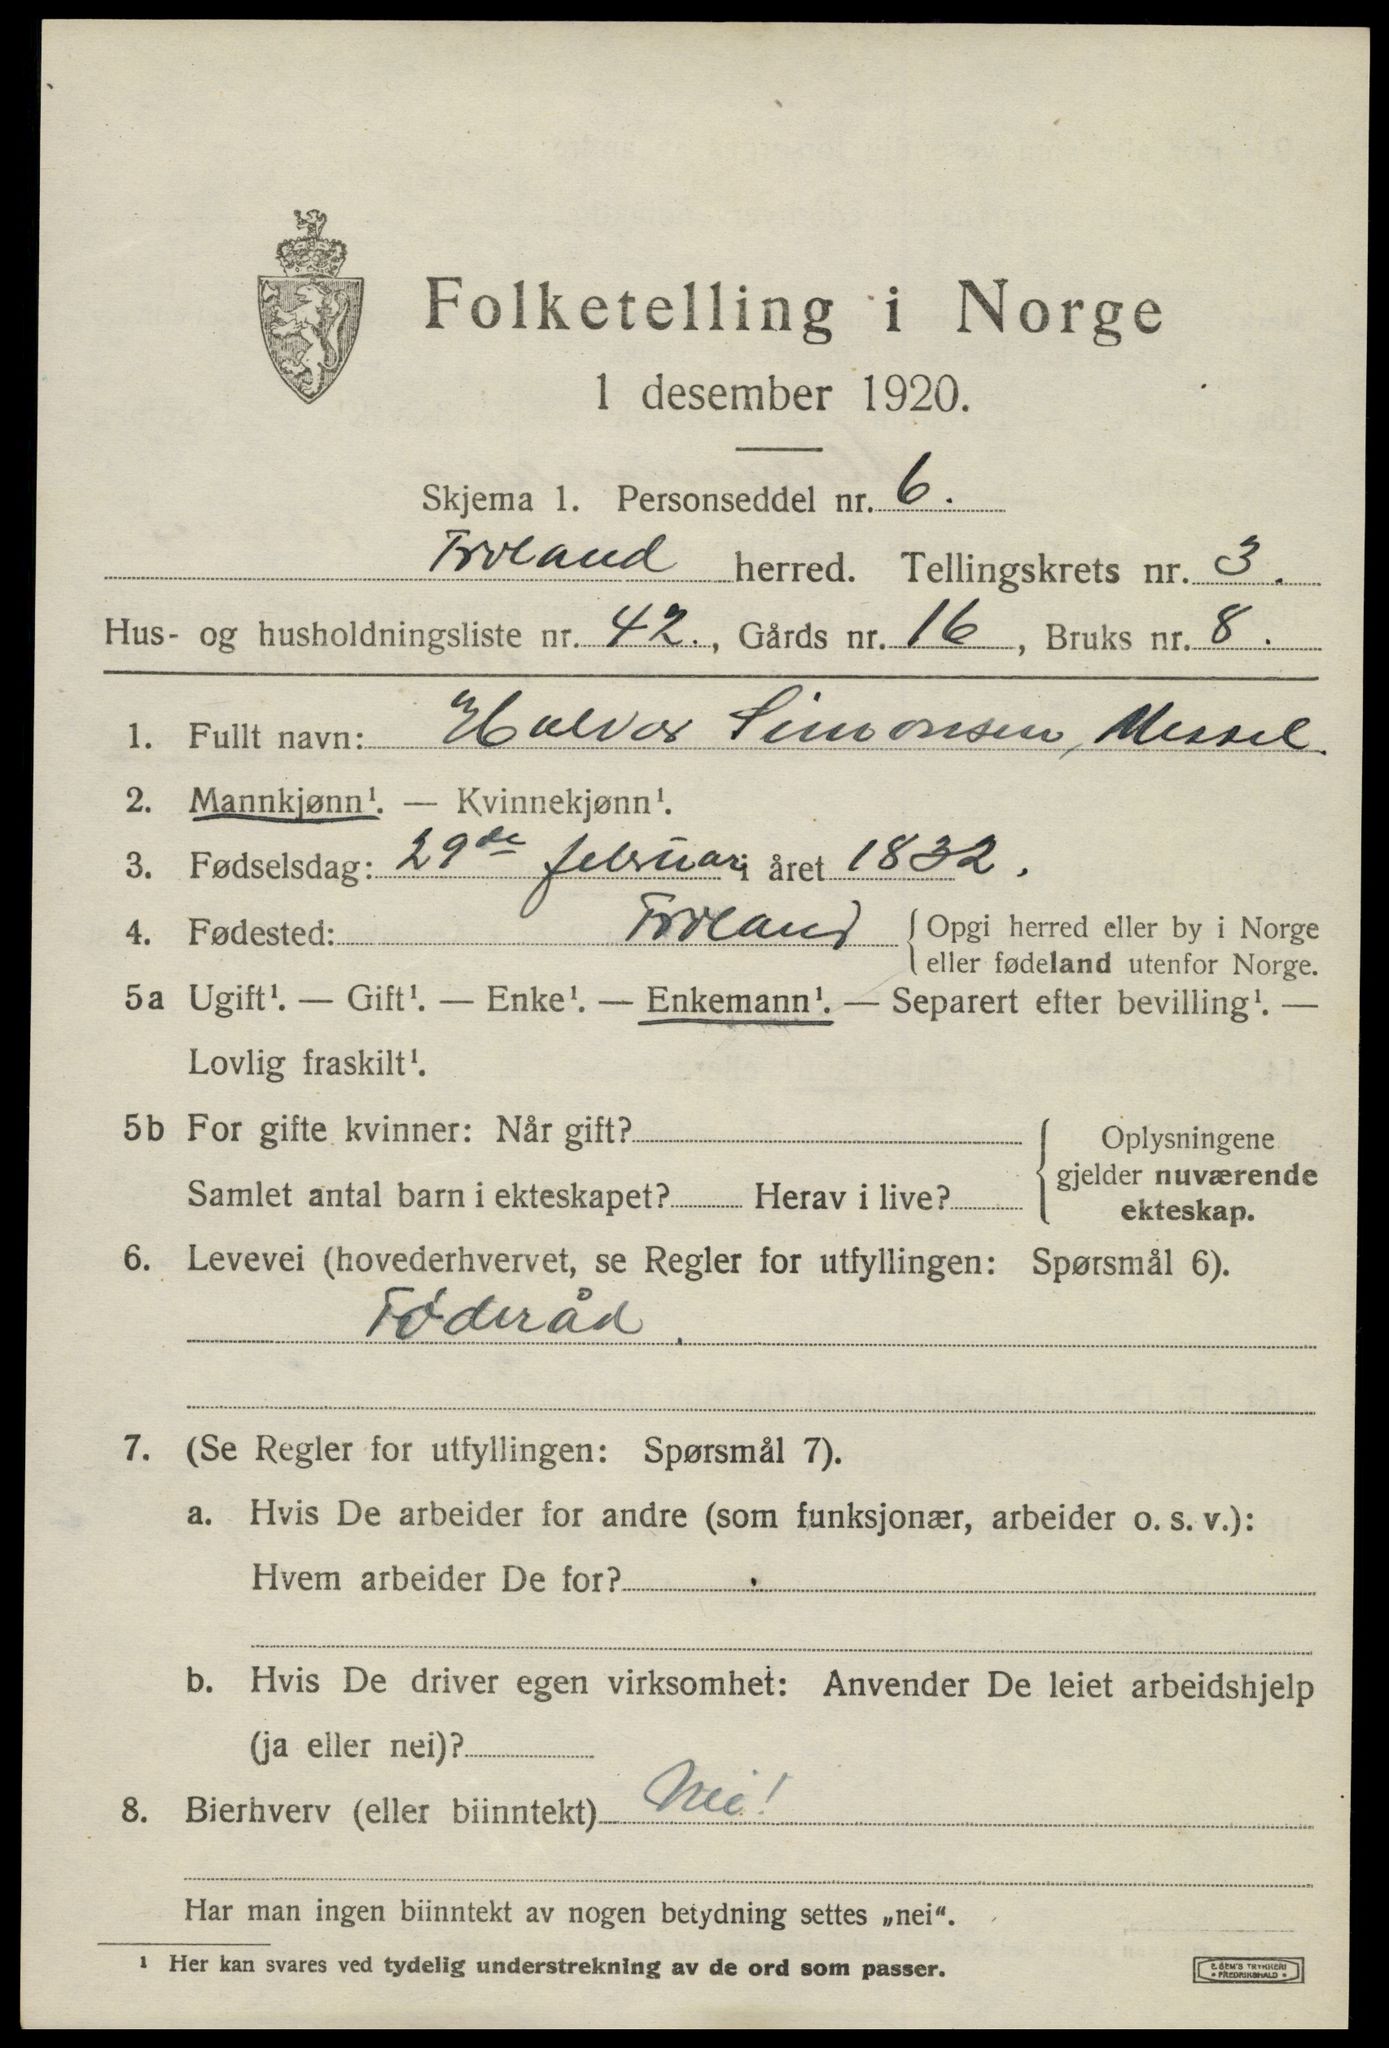 Folketelling i Norge
1 desember 1920.
Skjema 1. Personseddel nr. 6.
Froland herred. Tellingskrets nr. 3.
Hus- og husholdningsliste nr. 42., Gårds nr. 16, Bruks nr. 8.
1. Fullt navn: Halvor Simonsen, Messel.
2. Mannkjønn¹. — Kvinnekjønn¹.
3. Fødselsdag: 29de februar i året 1832.
4. Fødested: Froland { Opgi herred eller by i Norge
eller fødeland utenfor Norge.
5a Ugift¹. — Gift¹. — Enke¹. — Enkemann¹. — Separert efter bevilling¹. —
Lovlig fraskilt¹.
5b For gifte kvinner: Når gift?
Samlet antal barn i ekteskapet? Herav i live?
{ Oplysningene
gjelder nuværende
ekteskap.
6. Levevei (hovederhvervet, se Regler for utfyllingen: Spørsmål 6).
Føderåd.
7. (Se Regler for utfyllingen: Spørsmål 7).
a. Hvis De arbeider for andre (som funksjonær, arbeider o. s. v.):
Hvem arbeider De for?
b. Hvis De driver egen virksomhet: Anvender De leiet arbeidshjelp
(ja eller nei)?
8. Bierhverv (eller biinntekt) Nei!
Har man ingen biinntekt av nogen betydning settes „nei“.
¹ Her kan svares ved tydelig understrekning av de ord som passer.
E. SEM'S TRYKKERI
FREDRIKSHALD